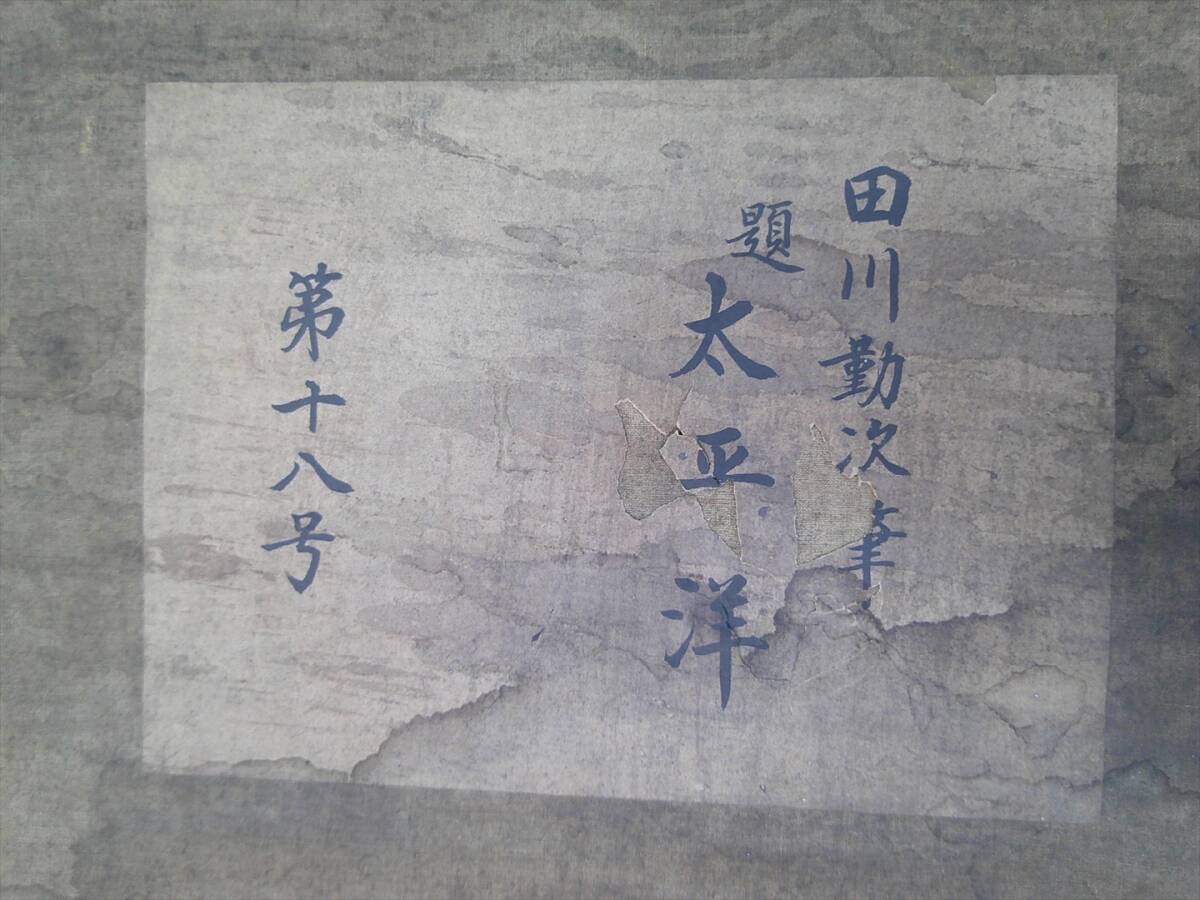 田川勤次筆
題 太平洋
第十八号